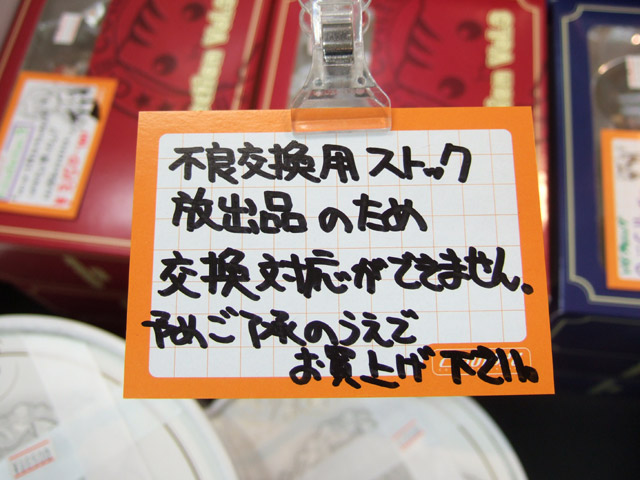 不良交換用ストック
放出品のため
交換対応ができません。
予めご了承のうえで
お買上げ下さい。